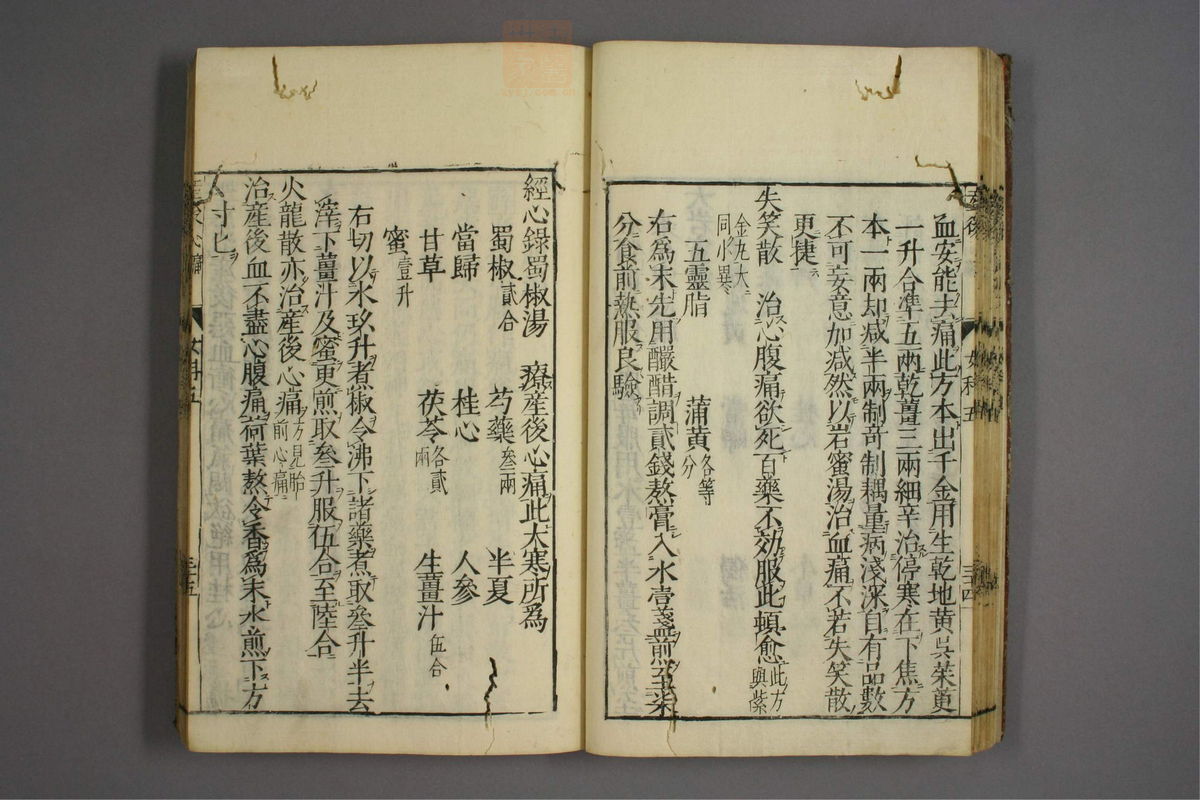 血安能去痛此方本出千金用生乾地黄吳茱萸
一升合準五兩乾薑三兩細辛治停寒在下焦方
本一兩却減半兩制奇制耦量病淺深自有品數
不可妄意加減然以岩蜜湯治血痛不若失笑散
更捷
失笑散 治心腹痛欲死百藥不効服此頓愈此方與紫
金丸大同小異
五靈脂 蒲黄各等分
右為末先用釅醋調貳錢熬膏入水壹盞煎至柒
分食前熱服良驗
産後
女科五
三四
經心錄蜀椒湯 療産後心痛此大寒所為
蜀椒貳合 芍藥叁兩 半夏
當歸 桂心 人參
甘草 茯苓各貳兩 生薑汁伍合
蜜壹升
右切以水玖升煮椒令沸下諸藥煮取叁升半去
滓下薑汁及蜜更煎取叁升服伍合至陸合
火龍散亦治産後心痛方見胎前心痛
治産後血不盡心腹痛荷葉熬令香為末水煎下方
寸匕
三五